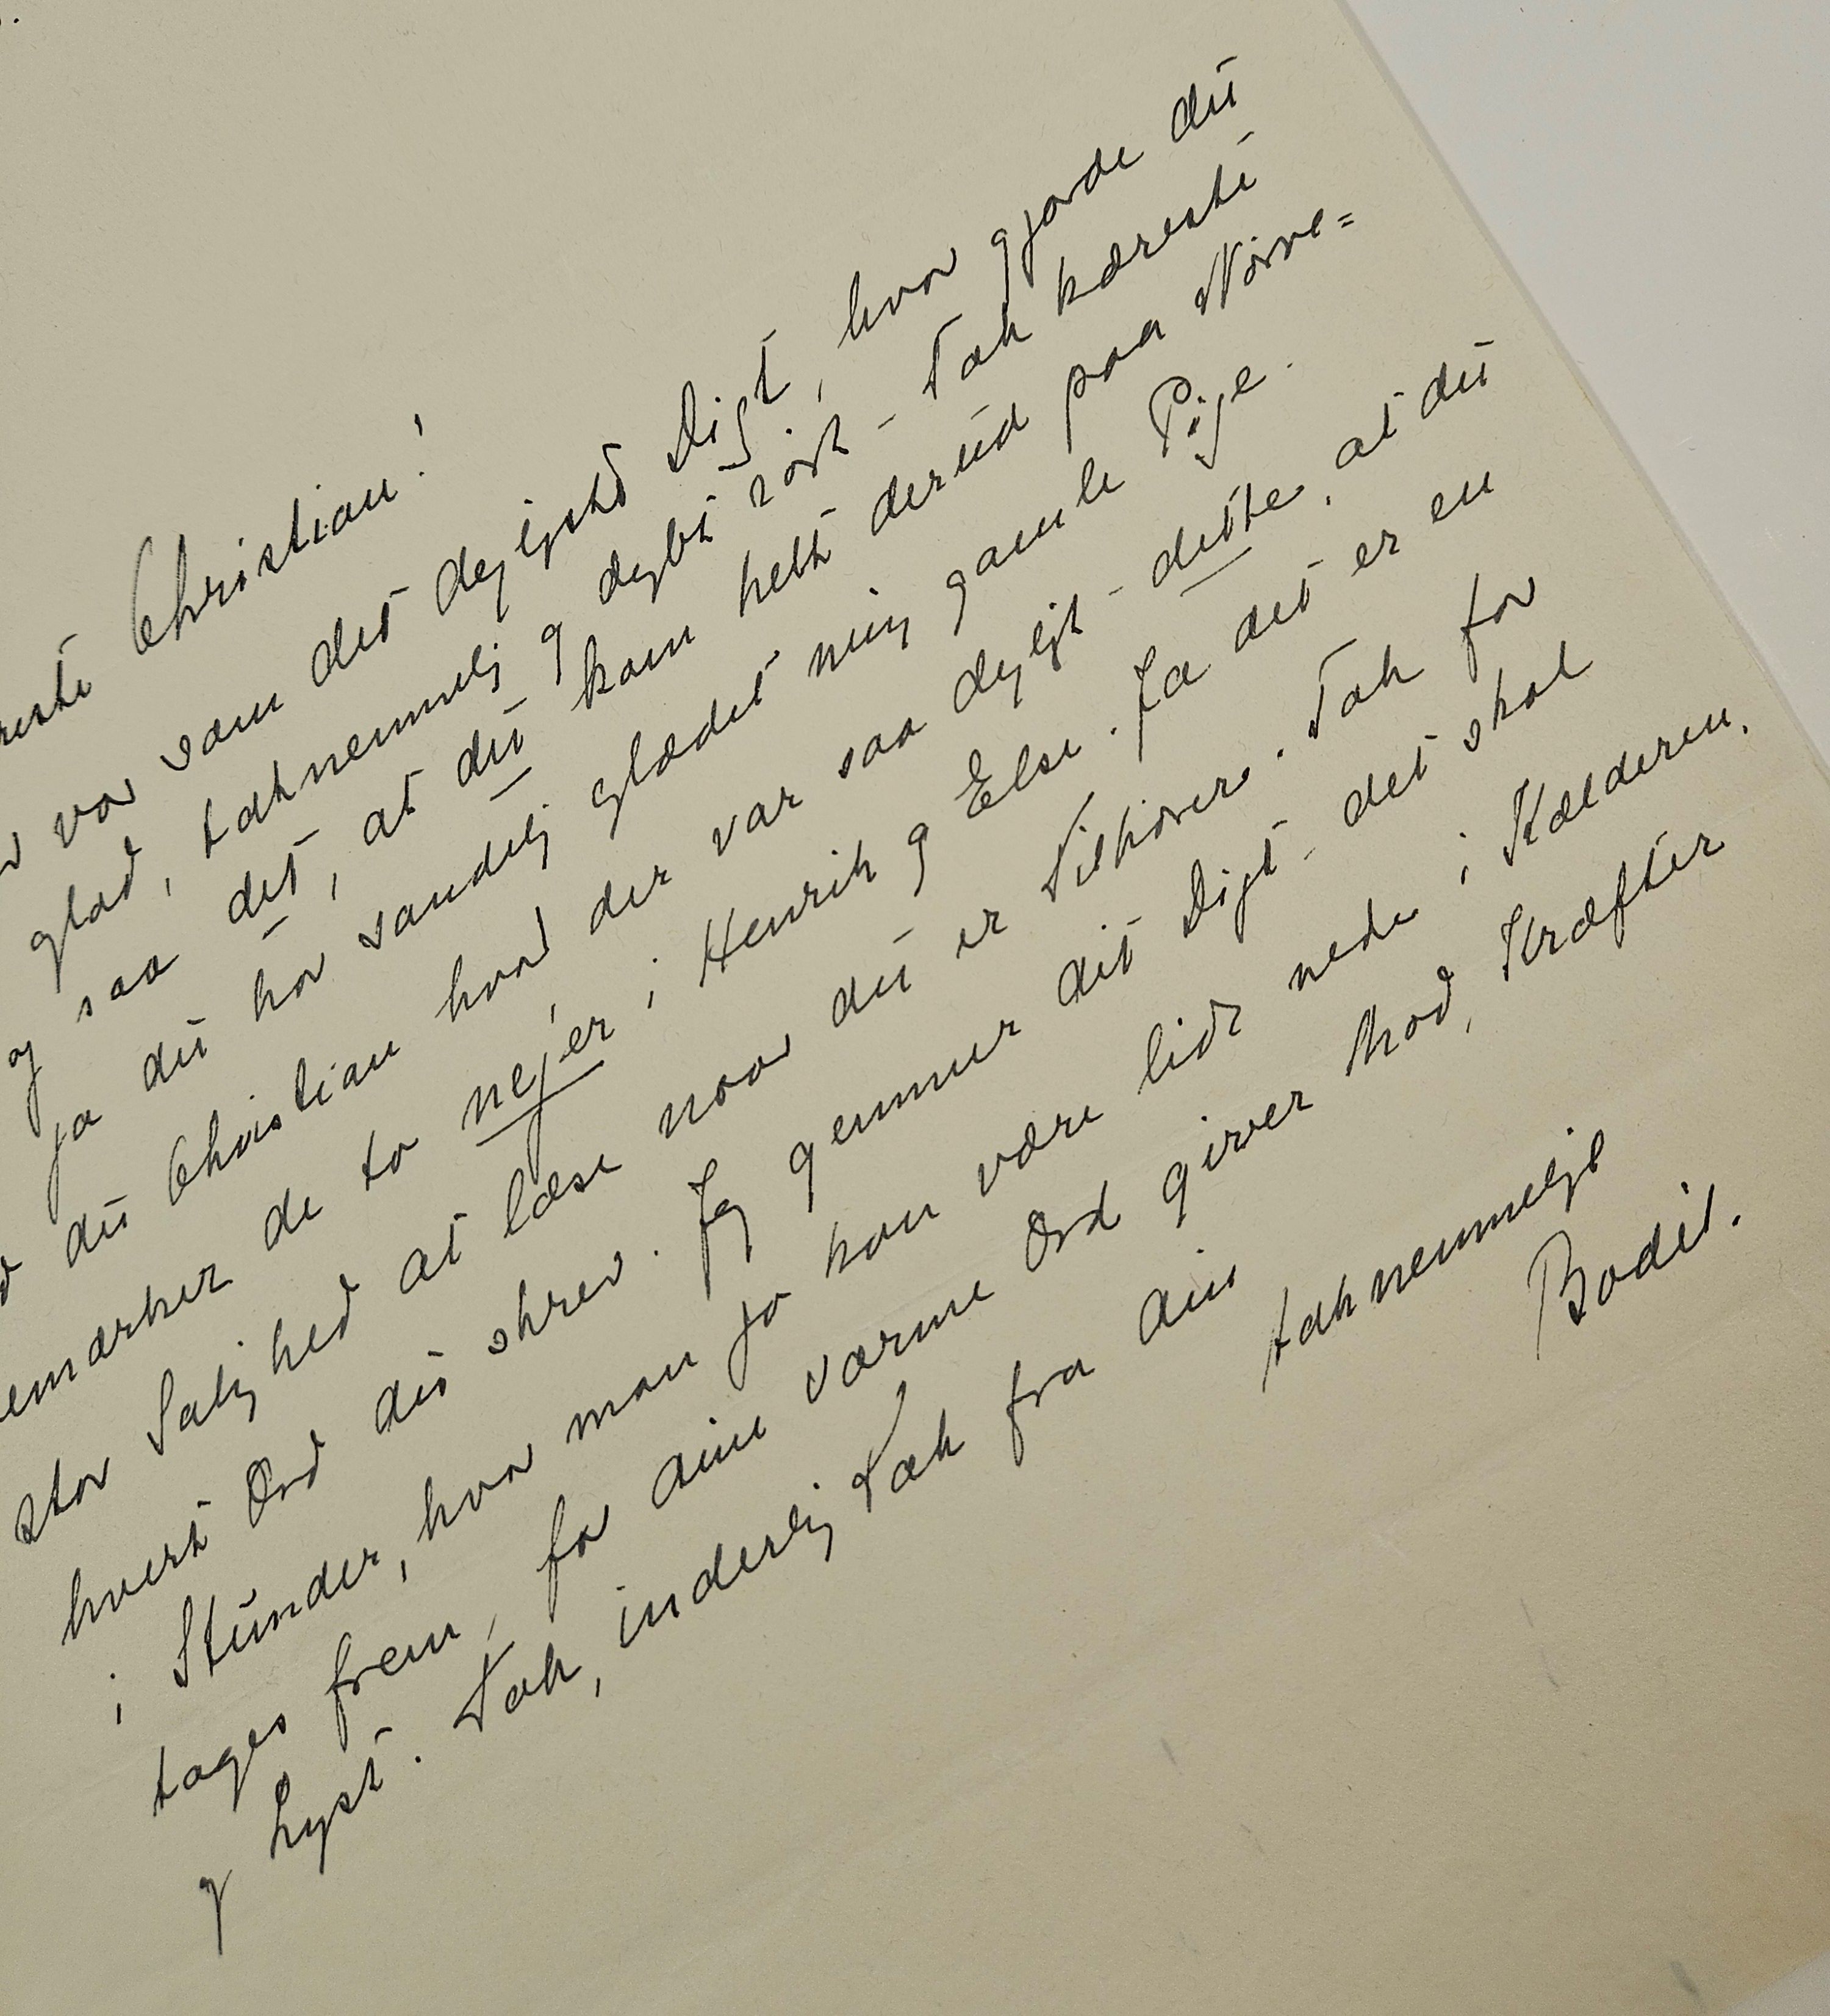 Christian!
var som det dejligste Digt, hvor gjorde du
glad, taknemmelig og dybt rørt - Tak kæreste
og saa det, at du kom helt derud paa Nørre=
ja du har sandelig glædet mig gamle Pige.
du Christian hvad der var saa dejligt - dette, at du
de to nejer, i Henrik og Else. Ja det er en
stor Salighed at læse naar du er Tilhører. Tak for
hvert Ord du skrev. Jeg gemmer dit Digt - det skal
i Stunder, hvor man jo kan være lidt nede i Kælderen,
tages frem, for dine varme Ord giver Mod, Kræfter
og Lyst. Tak, inderlig Tak fra din
taknemmelige
Bodil.